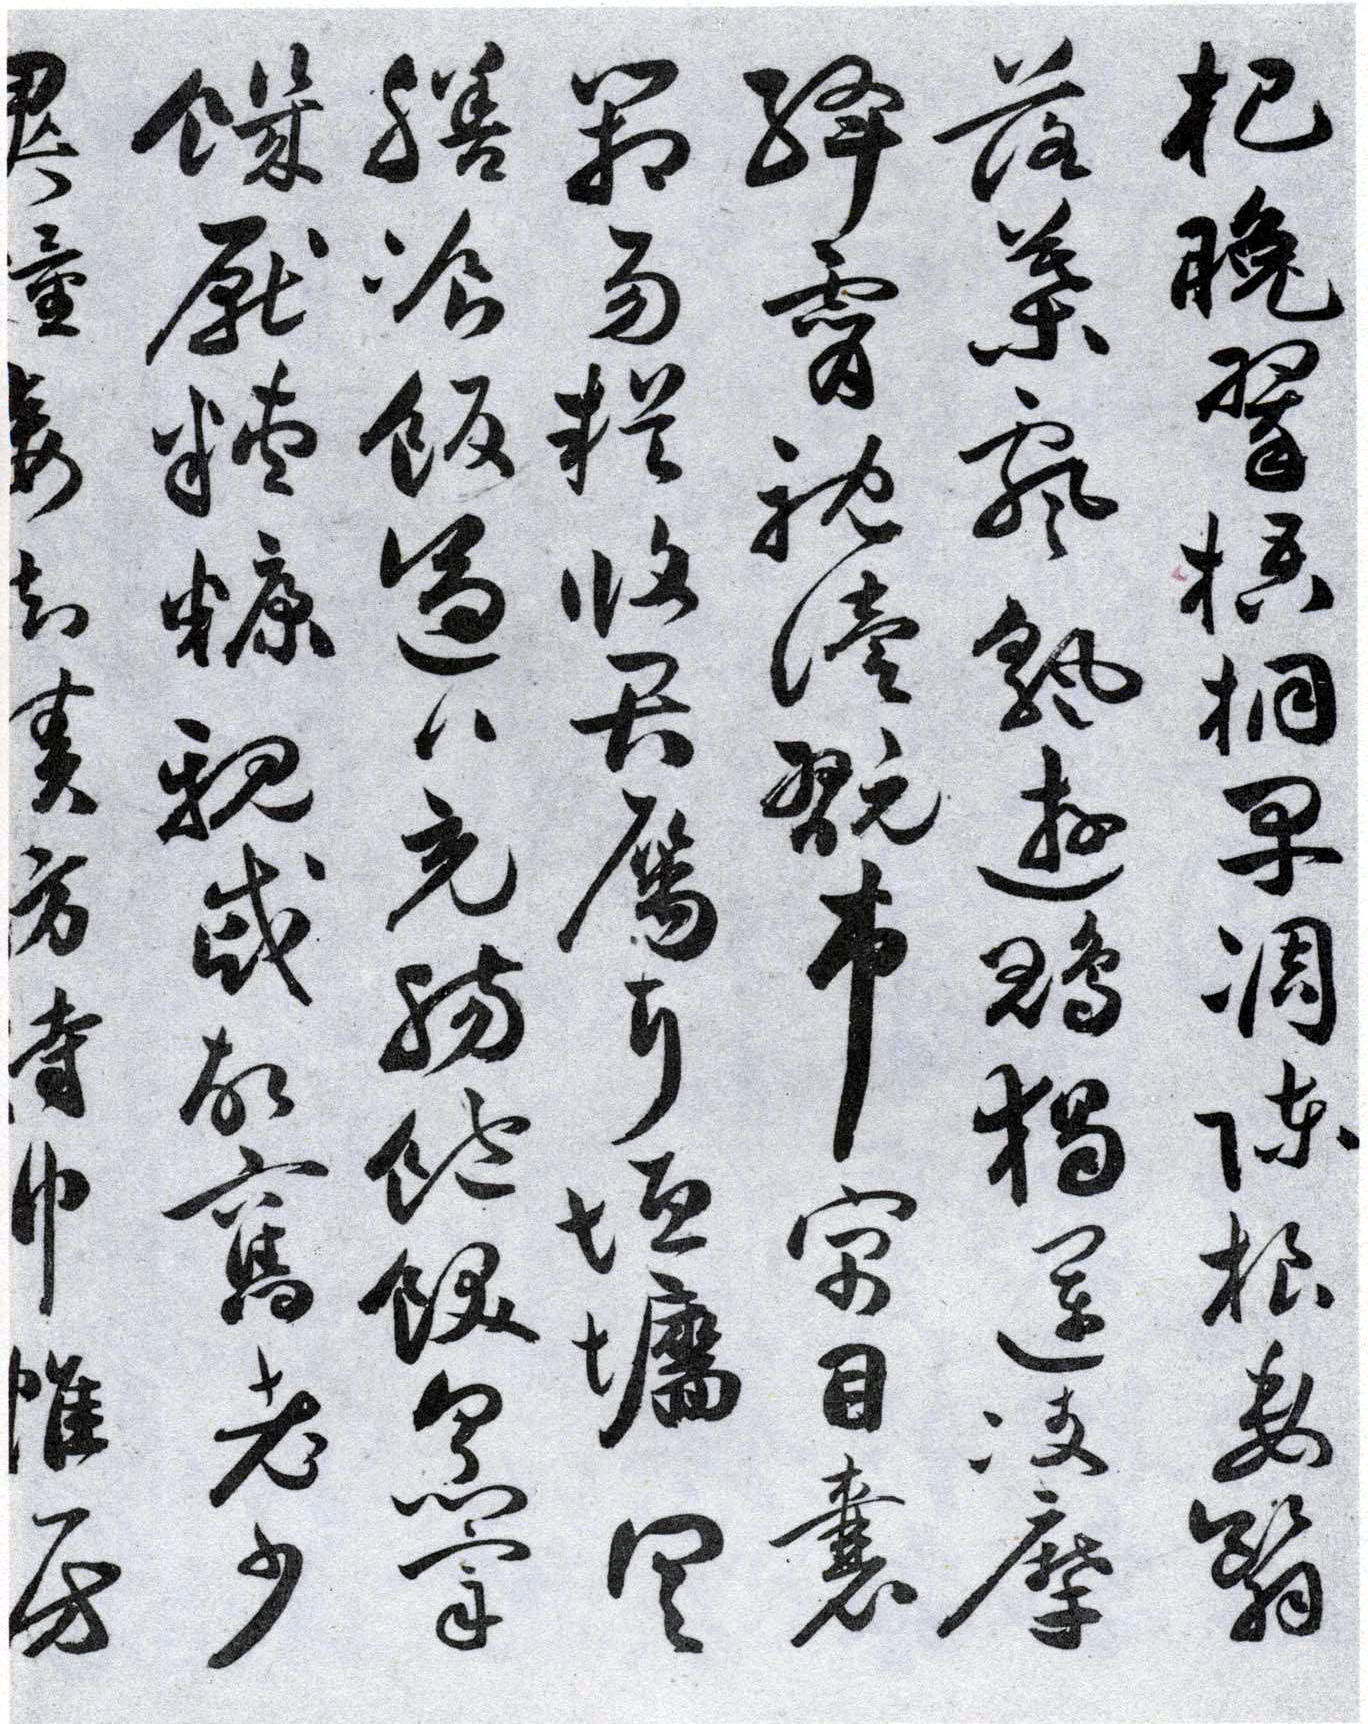 杷晚翠梧桐早凋陈根委翳
落葉飘飖遊鵾獨運凌摩
绛霄耽讀翫市寓目囊
箱易輶攸畏屬耳垣墉具
膳飡飯適口充腸飽飫烹宰
饑厭糟糠親戚故舊老少
異糧妾御績紡侍巾帷房